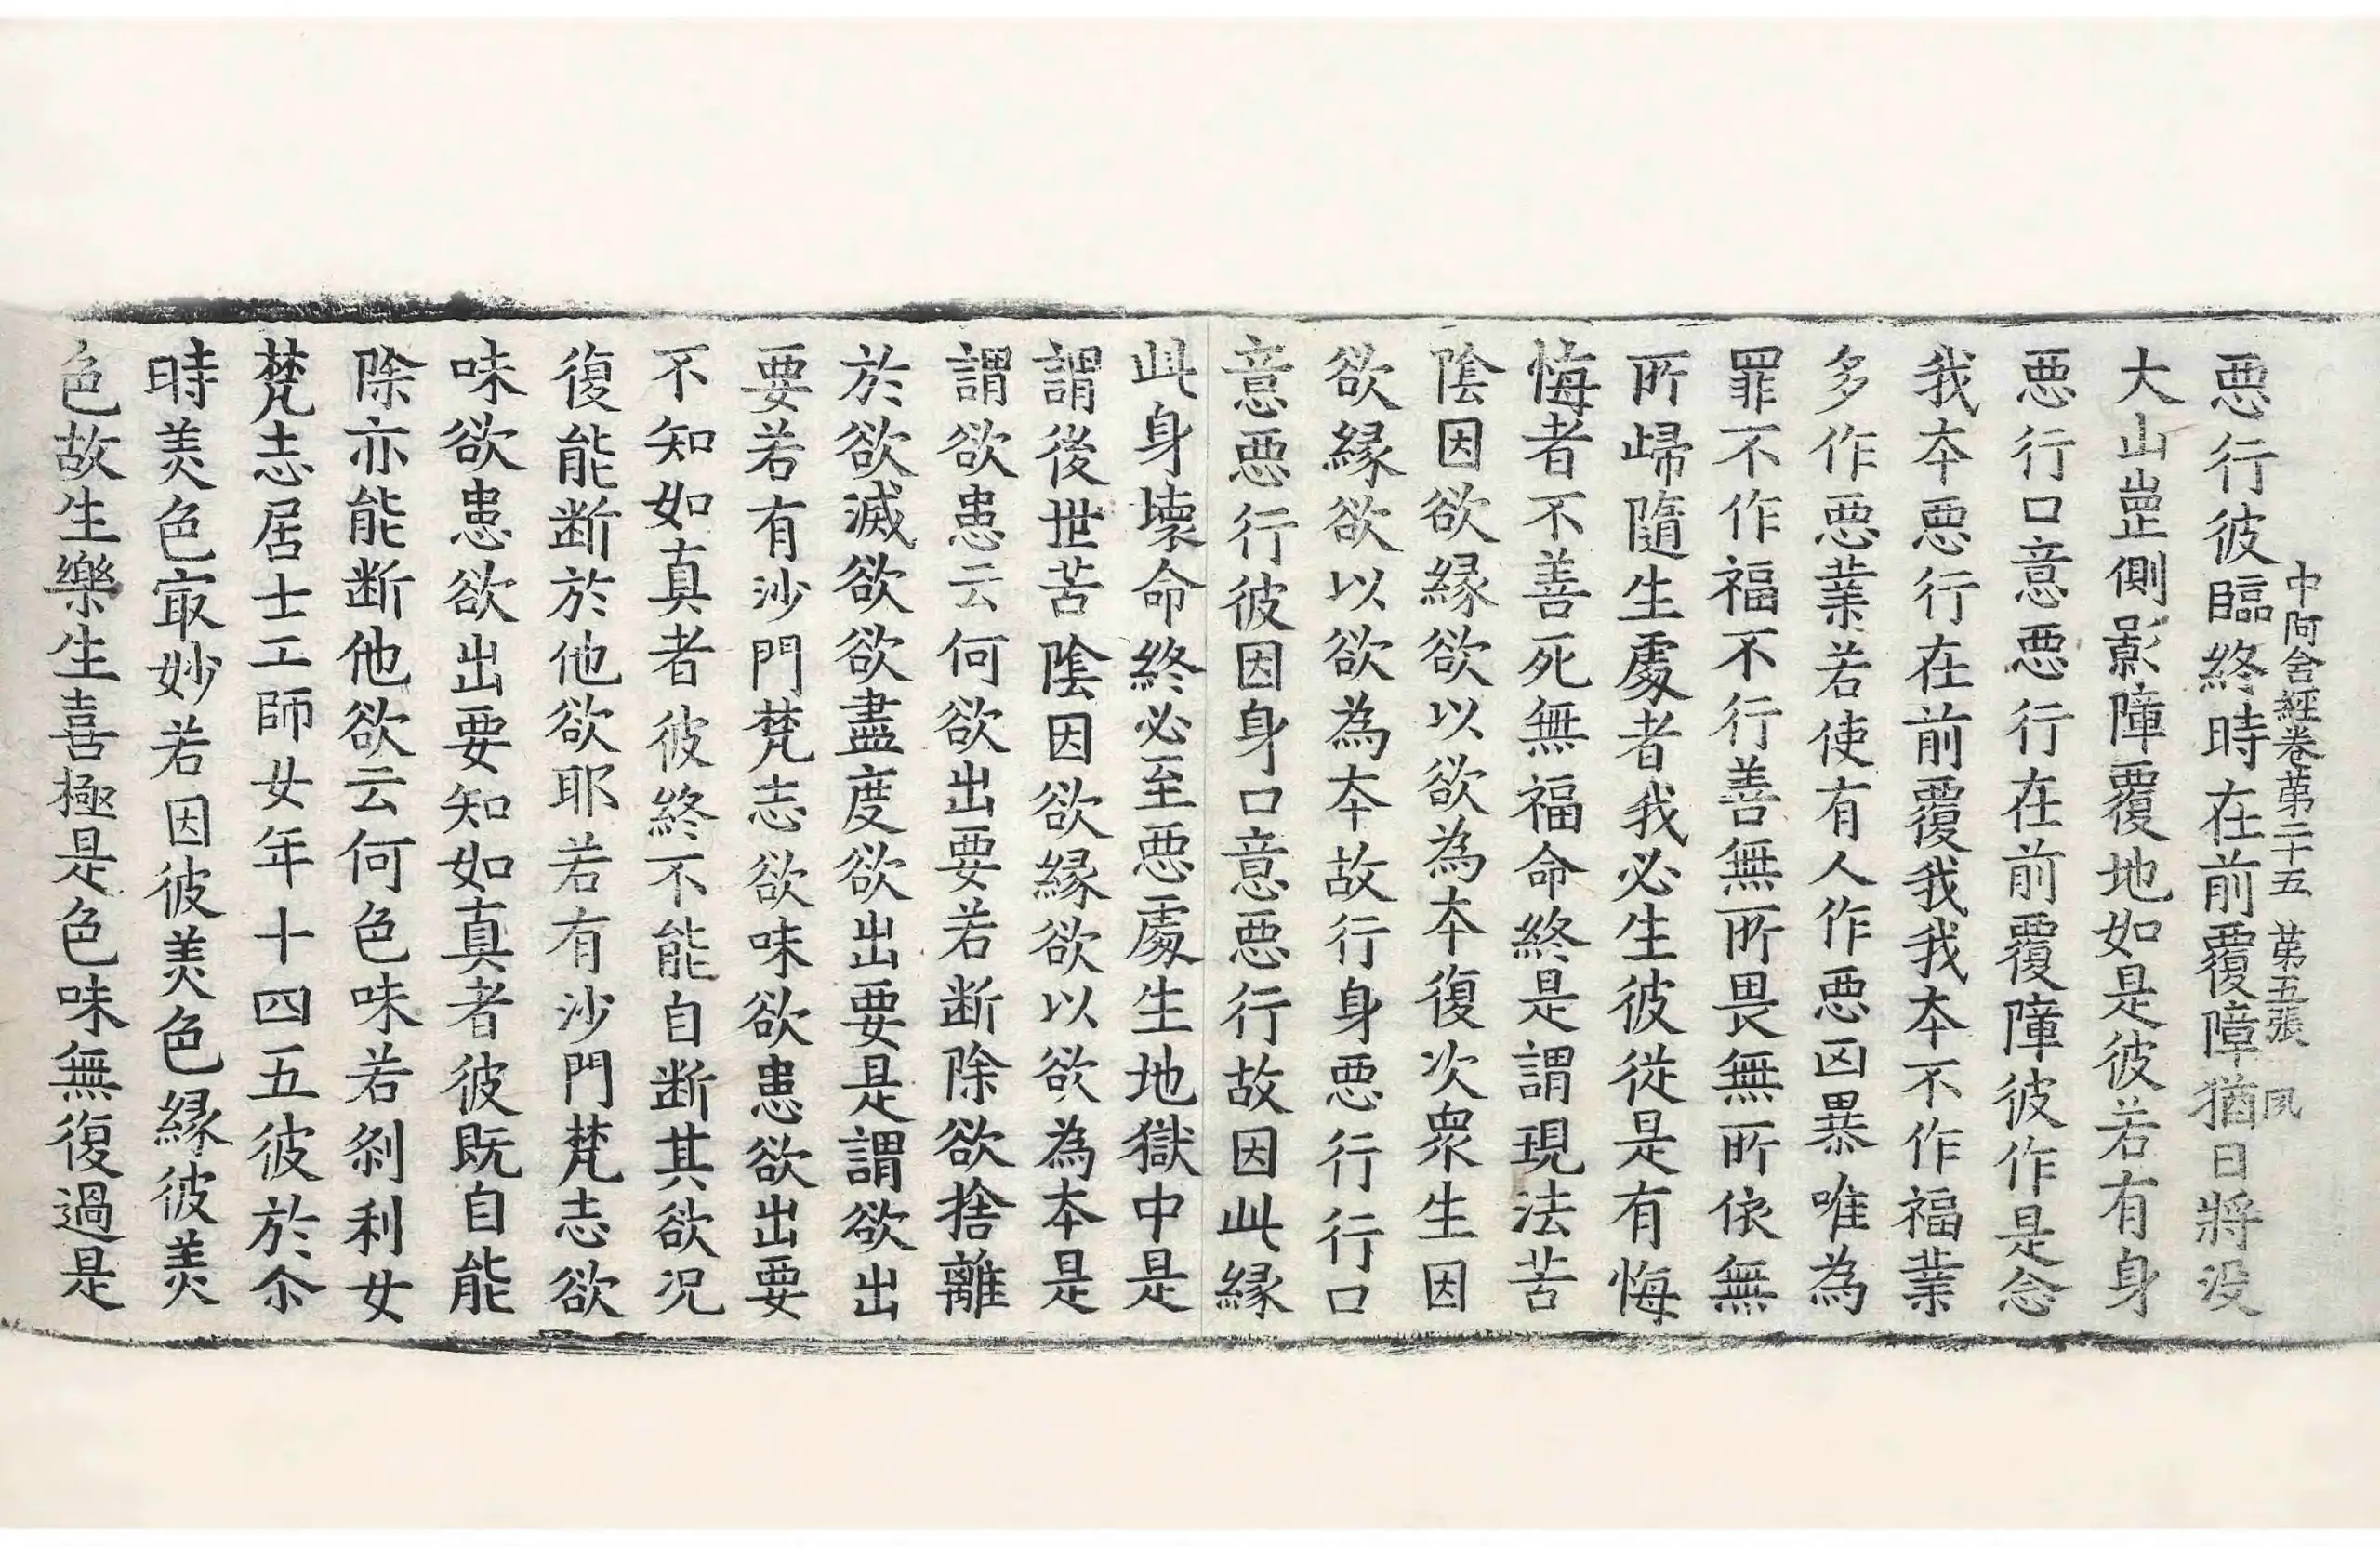 中阿含經卷第二十五　第五張　夙
惡行彼臨終時在前覆障猶日將没
大山崗側影障覆地如是彼若有身
惡行口意惡行在前覆障彼作是念
我本惡行在前覆我我本不作福業
多作惡業若使有人作惡凶暴唯為
罪不作福不行善無所畏無所依無
所歸隨生處者我必生彼從是有悔
悔者不善死無福命終是謂現法苦
陰因欲緣欲以欲為本復次衆生因
欲緣欲以欲為本故行身惡行行口
意惡行彼因身口意惡行故因此緣
此身壞命終必至惡處生地獄中是
謂後世苦陰因欲緣欲以欲為本是
謂欲患云何欲出要若断除欲捨離
於欲滅欲欲盡度欲出要是謂欲出
要若有沙門梵志欲味欲患欲出要
不知如真者彼終不能自断其欲况
復能断於他欲耶若有沙門梵志欲
味欲患欲出要知如真者彼既自能
除亦能断他欲云何色味若剎利女
梵志居士工師女年十四五彼於尒
時美色㝡妙若因彼美色緣彼美
色故生樂生喜極是色味無復過是